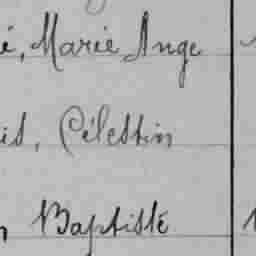 é, Marie Ange
is, Célestin
n Baptiste